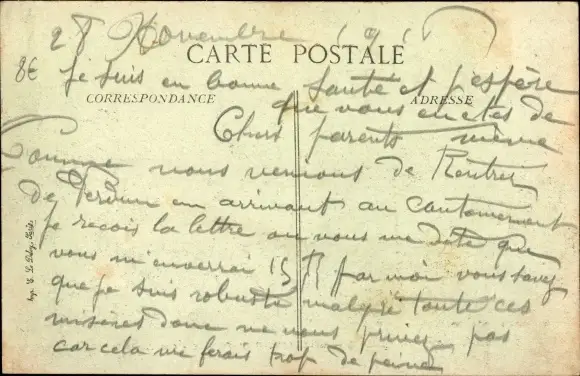 28 Novembre 191
CARTE POSTALE
8€
Je suis en bonne santé et j'espère
CORRESPONDANCE
ADRESSE
que vous en etes de
Chers parents même
Comme nous venions de Rentrer
de Verdun en arrivant au Cantonnement
Je reçois la lettre ou vous me dite que
vous m'enverrai 15 par moi vous savez
que je suis robuste malgré toute ces
misères donc ne vous privez pas
car cela me ferais trop de peine